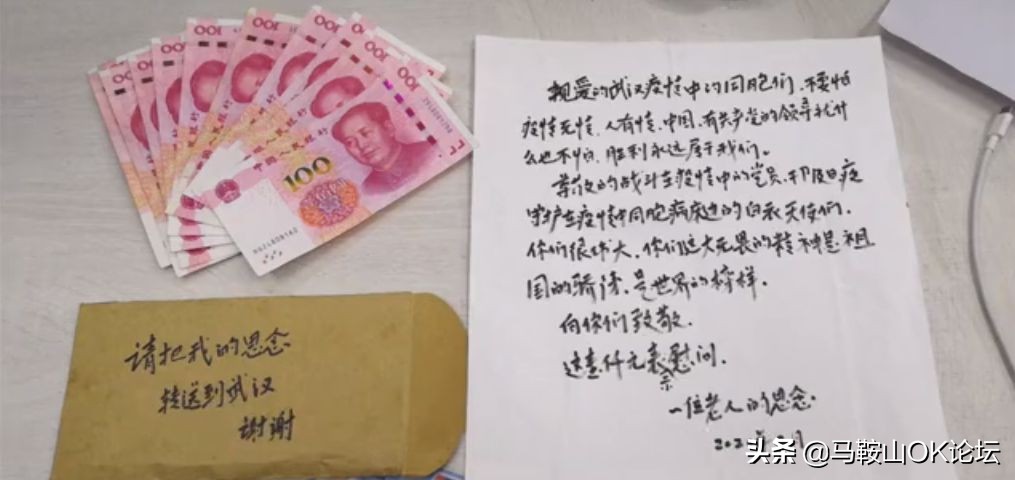 100
请把我的思念
转送到武汉
谢谢
亲爱的武汉疫情中的同胞们,不要怕
疫情无情,人有情,中国,有共产党的领导就什
么也不怕,胜利永远属于我们。
尊敬的战斗在疫情中的党员,干部及日夜
守护在疫情中同胞病床边的白衣天使们.
你们很伟大,你们这大无畏的精神是祖
国的骄傲,是世界的榜样.
向你们致敬.
这壹仟元表示慰问.
一位老人的思念.
头条 @马鞍山OK论坛